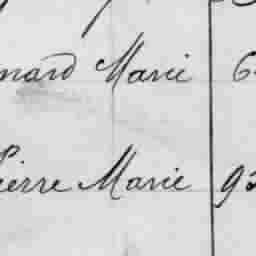 nard Marie 6
ierre Marie 92